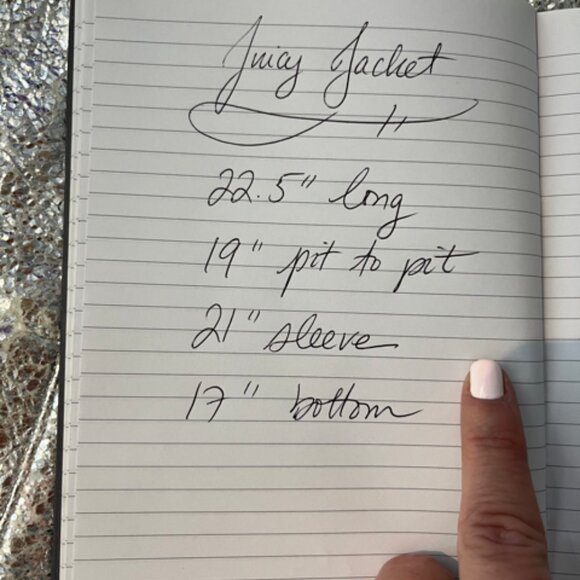 Juicy Jacket
22.5" long
19" pit to pit
21" sleeve
17" bottom